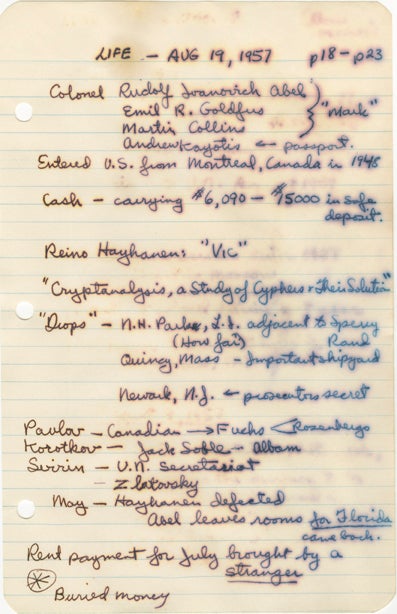 LIFE - AUG 19, 1957 p18-p23
Colonel Rudolf Ivanovich Abel
Emil R. Goldfus } "Mark"
Martin Collins
Andrew Kayotis ← passport.
Entered U.S. from Montreal, Canada in 1948
Cash - carrying $6,090 - $15000 in safe
deposit.
Reino Hayhanen: "Vic"
"Cryptanalysis, a Study of Cyphers & Their Solution"
"Drops" - N.H. Park, L.I. adjacent to Sperry
(How far) Rand
Quincy, Mass - Important shipyard
Newark, N.J. ← prosecutors secret
Pavlov - Canadian → Fuchs < Rosenbergs
Korotkov - Jack Soble - Albam
Svirin - U.N. Secretariat
- Zlatovsky
May - Hayhanen defected
Abel leaves rooms for Florida
came back.
Rent payment for July brought by a
stranger
Buried money